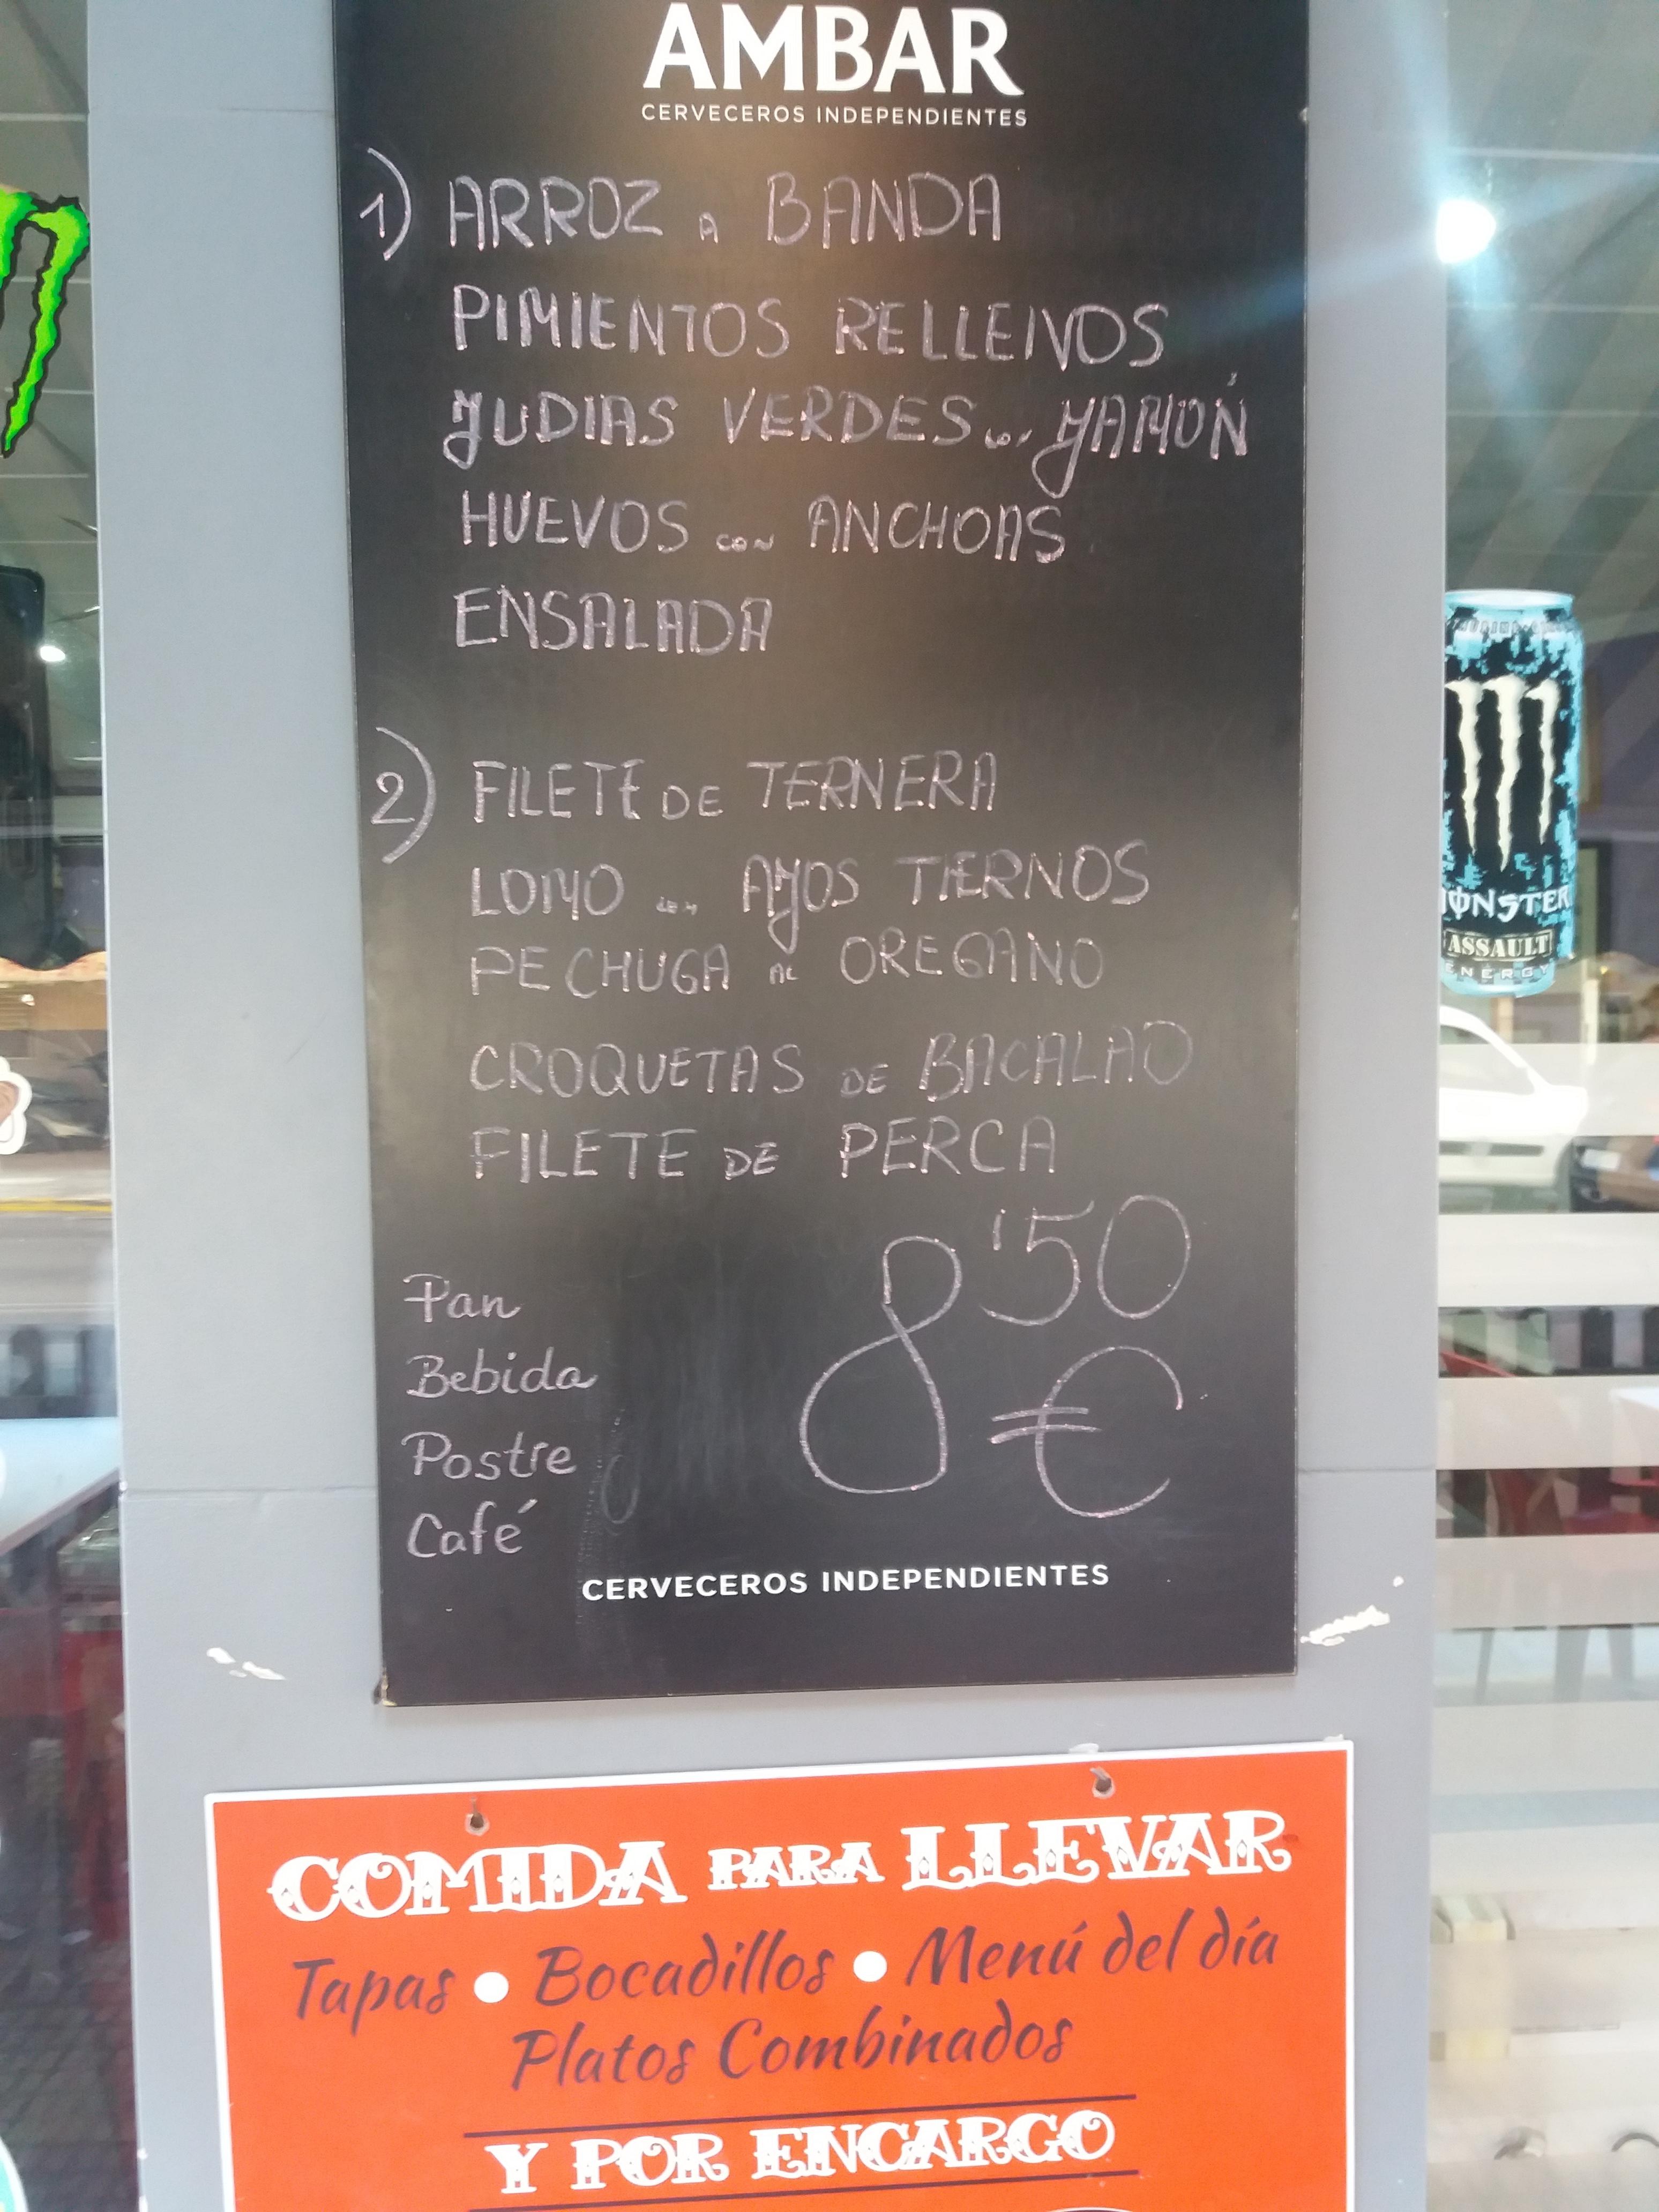 AMBAR
CERVECEROS INDEPENDIENTES
1) ARROZ A BANDA
PIMIENTOS RELLENOS
JUDIAS VERDES con JAMÓN
HUEVOS con ANCHOAS
ENSALADA
2) FILETE DE TERNERA
LOMO con AJOS TIERNOS
PECHUGA AL OREGANO
CROQUETAS DE BACALAO
FILETE DE PERCA
8'50 €
Pan
Bebida
Postre
Café
CERVECEROS INDEPENDIENTES
MONSTER
ASSAULT
ENERGY
COMIDA PARA LLEVAR
Tapas • Bocadillos • Menú del día
Platos Combinados
Y POR ENCARGO